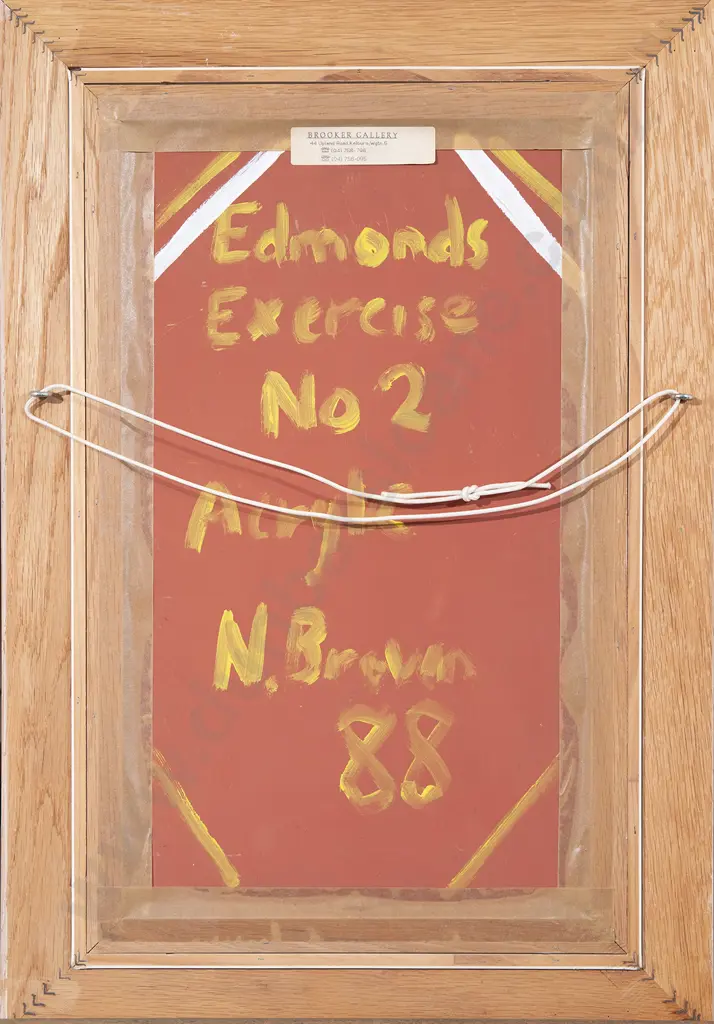 BROOKER GALLERY
Edmonds
Exercise
No 2
Acrylic
N. Brown
88